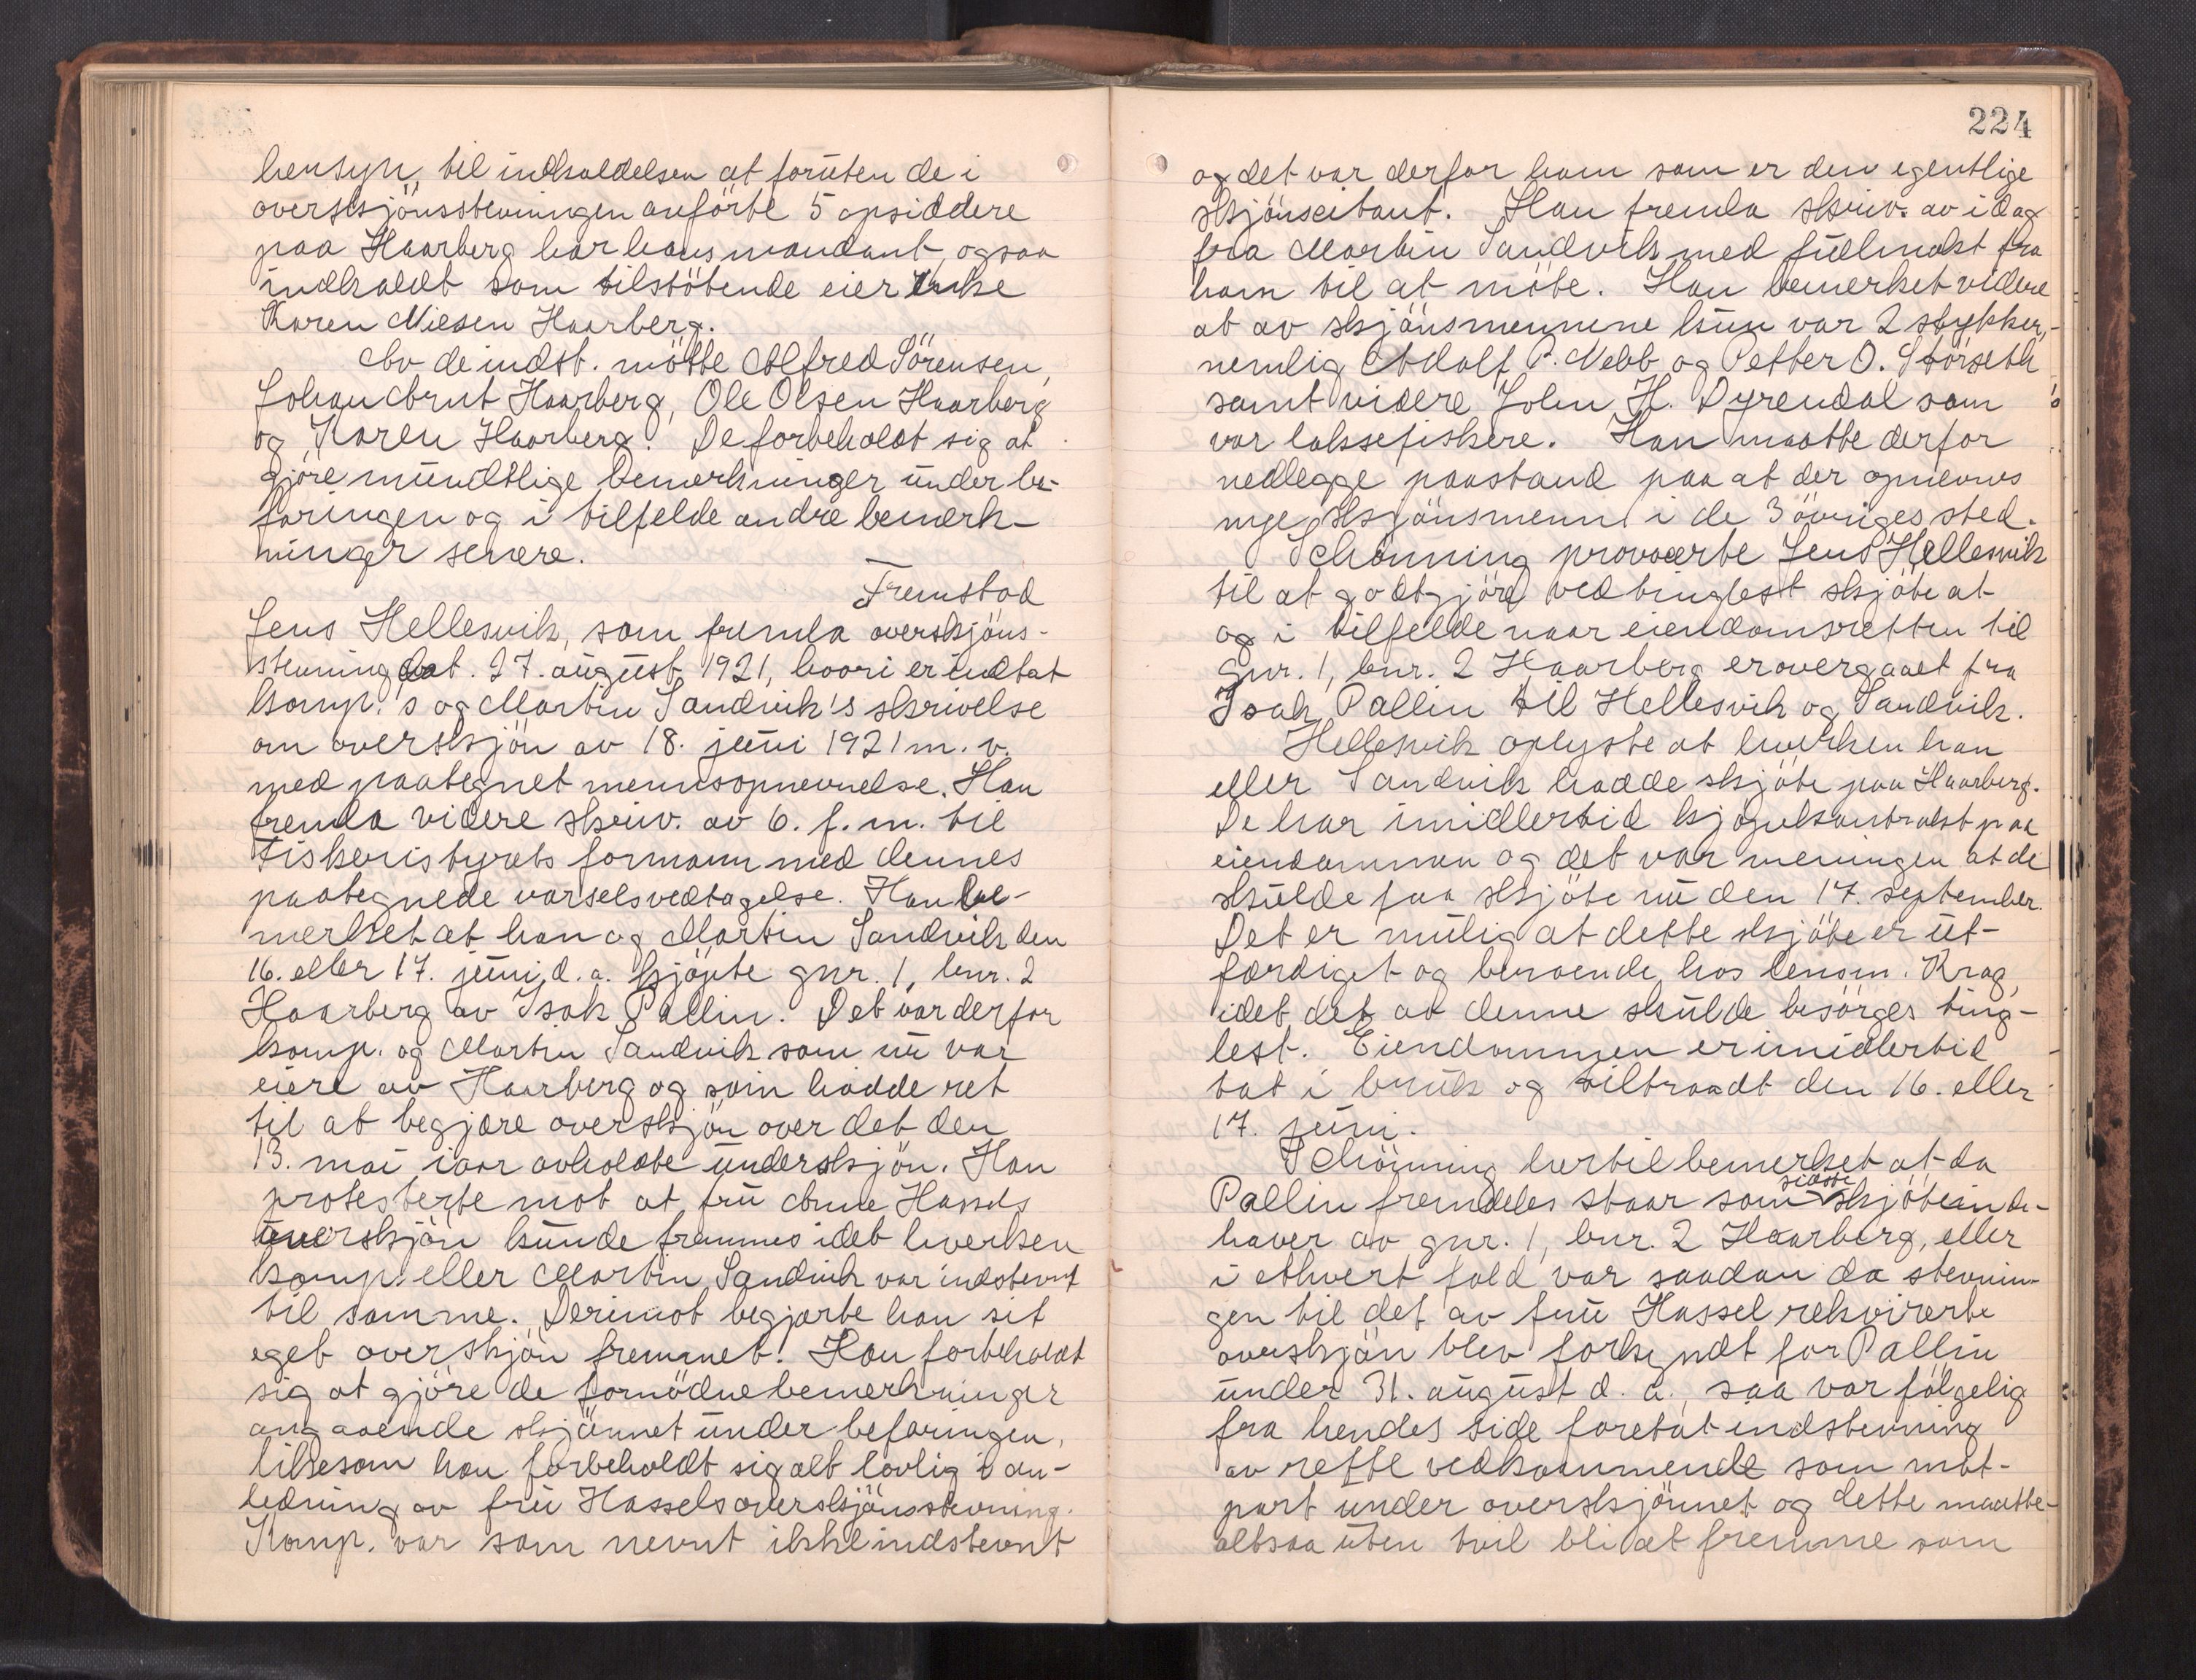 hensyn til indkaldelsen at foruten de i
overskjönsstevningen anförte 5 opsiddere
paa Haarberg har hans mandant ogsaa
indkaldt som tilstötende eier enke
Karen Nilsen Haarberg.
Av de indst. mötte Alfred Sörensen,
Johan Arnt Haarberg, Ole Olsen Haarberg
og Karen Haarberg. De forbeholdt sig at
gjöre mundtlige bemerkninger under be-
faringen og i tilfelde andre bemerk-
ninger senere.
Fremstod
Jens Hellesvik, som fremla overskjöns-
stevning dat. 27. august 1921, hvori er indtat
komp.'s og Martin Sandvik's skrivelse
om overskjön av 18. juni 1921 m. v.
med paategnet mennsopnevnelse. Han
fremla videre skriv. av 6. f. m. til
Fiskeristyrets formann med dennes
paategnede varselsvedtagelse. Han be-
merket at han og Martin Sandvik den
16. eller 17. juni d. a. kjöpte gnr. 1, bnr. 2
Haarberg av Isak Pallin. Det var derfor
komp. og Martin Sandvik som nu var
eiere av Haarberg og som hadde ret
til at begjære overskjön over det den
13. mai iaar avholdte underskjön. Han
protesterte mot at fru Anne Hassels
overskjön kunde fremmes idet hverken
komp. eller Martin Sandvik var indstevnt
til samme. Derimot begjærte han sit
eget overskjön fremmet. Han forbeholdt
sig at gjöre de fornödne bemerkninger
angaaende skjönnet under befaringen,
likesom han forbeholdt sig alt lovlig i an-
ledning av fru Hassels overskjönsstevning.
Komp. var som nevnt ikke indstevnt
224
og det var derfor ham som er den egentlige
skjönscitant. Han fremla skriv. av idag
fra Martin Sandvik med fullmakt fra
ham til at möte. Han bemerket videre
at av skjönsmennene kun var 2 stykker,
nemlig Adolf P. Nebb og Petter O. Störseth
samt videre John H. Dyrendal som
var laksefiskere. Han maatte derfor
nedlegge paastand paa at der opnevnes
nye skjönsmenn i de 3 övriges sted.
Schönning provoserte Jens Hellesvik
til at godtgjöre ved tinglest skjöte at
og i tilfelde naar eiendomsretten til
gnr. 1, bnr. 2 Haarberg er overgaaet fra
Isak Pallin til Hellesvik og Sandvik.
Hellesvik oplyste at hverken han
eller Sandvik hadde skjöte paa Haarberg.
De har imidlertid kjöpekontrakt paa
eiendommen og det var meningen at de
skulde faa skjöte nu den 17. september.
Det er mulig at dette skjöte er ut-
færdiget og beroende hos lensm. Krog,
idet det av denne skulde besörges ting-
lest. Eiendommen er imidlertid
tat i bruk og tiltraadt den 16. eller
17. juni.
Schönning hertil bemerket at da
Pallin fremdeles staar som sidste skjöteinde-
haver av gnr. 1, bnr. 2 Haarberg, eller
i ethvert fald var saadan da stevnin-
gen til det av fru Hassel rekvirerte
overskjön blev forkyndt for Pallin
under 31. august d. a., saa var fölgelig
fra hendes side foretat indstevning
av rette vedkommende som mot-
part under overskjönnet og dette maatte
altsaa uten tvil bli at fremme som